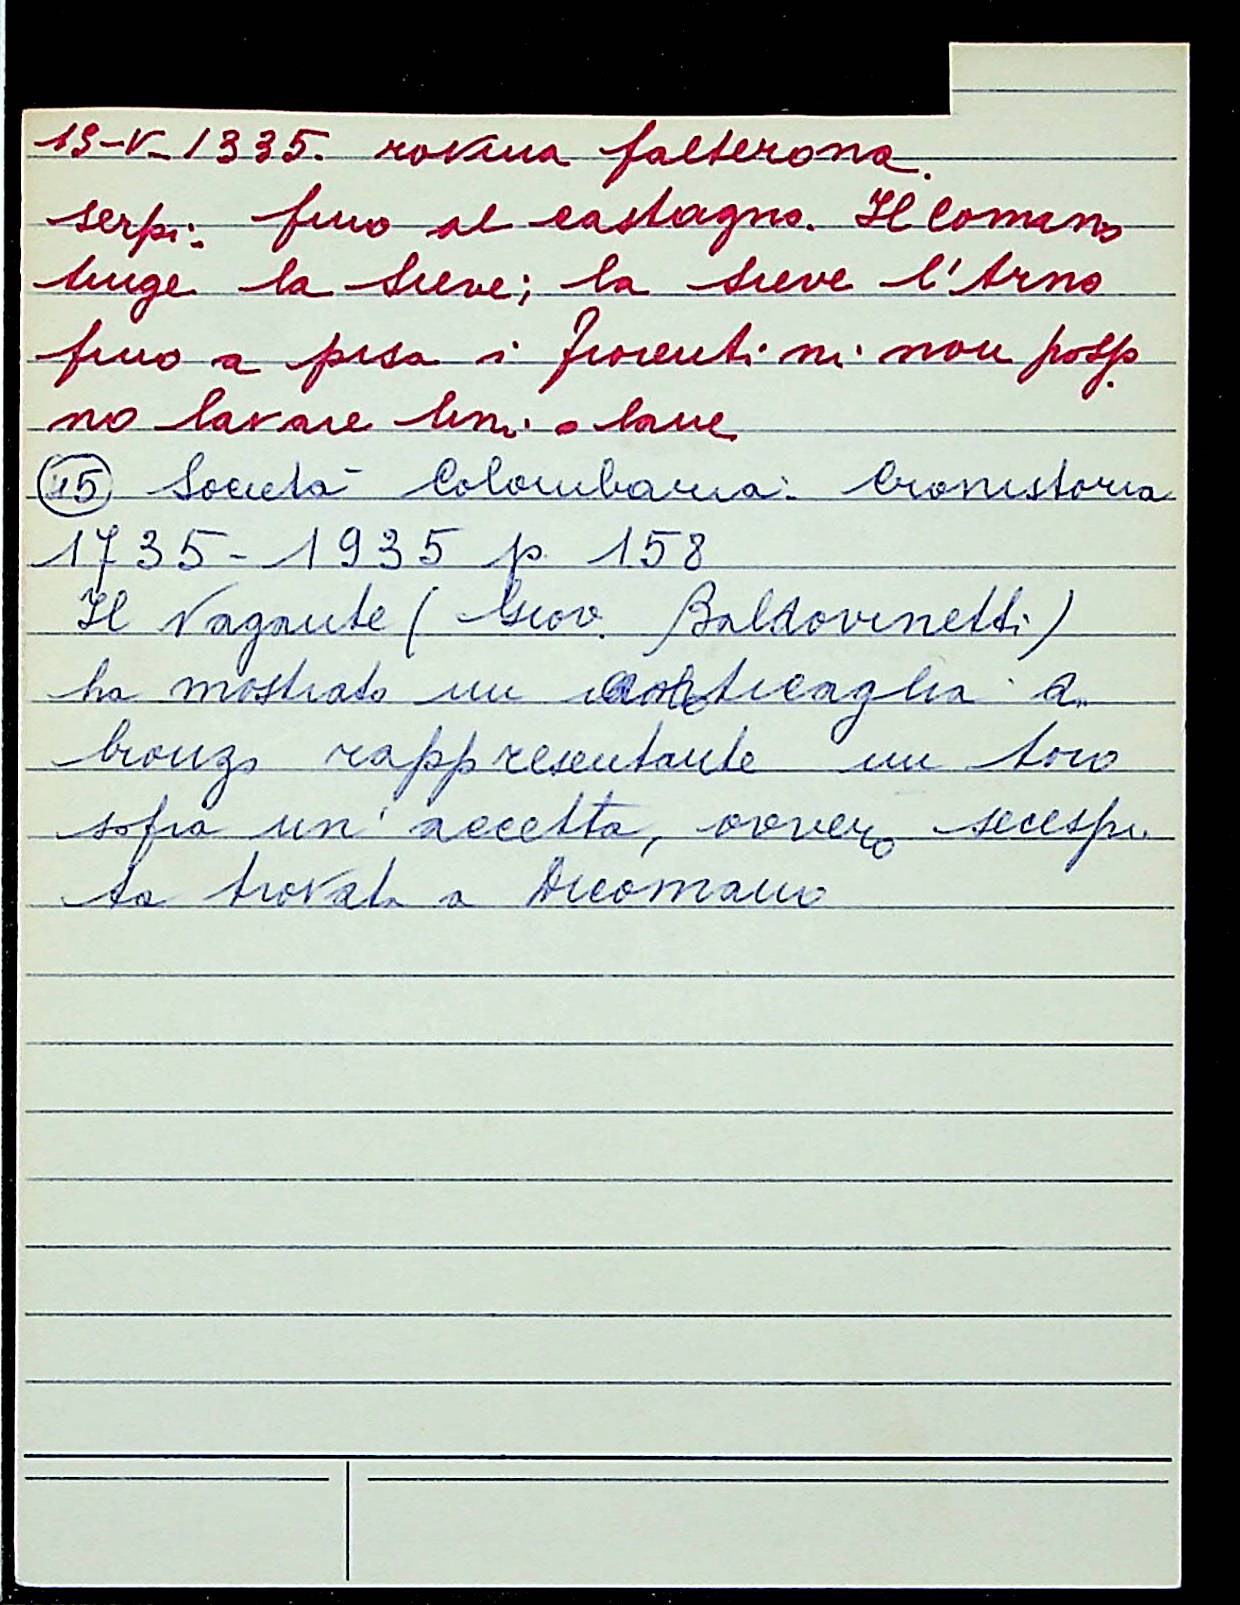 15-V-1335. rovina falterona.
serpi. fino al castagno. Il Comano
tinge la Sieve; la Sieve l'Arno
fino a pisa i fiorentini non posso
no lavare lini o lane
Società Colombaria: Cronistoria
1735-1935 p. 158
Il Vagante (Giov. Baldovinetti)
ha mostrato un anticaglia di
bronzo rappresentante un toro
sopra un'accetta, ovvero secespi
ta trovata a Dicomano